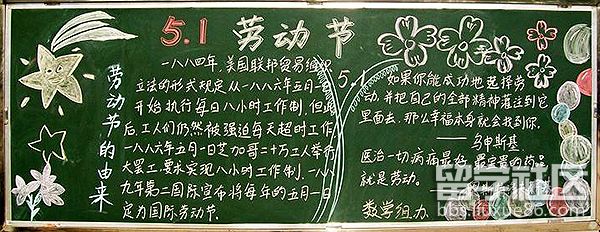 5.1 劳动节
劳动节的由来
一八八四年,美国联邦贸易组织
立法的形式规定从一八八六年五月一日
开始执行每日八小时工作制,但此
后,工人们仍然被强迫每天超时工作
一八八六年五月一日芝加哥二十万工人举行
大罢工,要求实现八小时工作制,一八八
九年第二国际宣布将每年的五月一日
定为国际劳动节.
5.1
如果你能成功地选择劳
动,并把自己的全部精神灌注到它
里面去,那么幸福本身就会找到你.
——乌申斯基
医治一切病痛最好、最宝贵的药品
就是劳动。
数学组办
留学社区
bbs.liuxue86.com